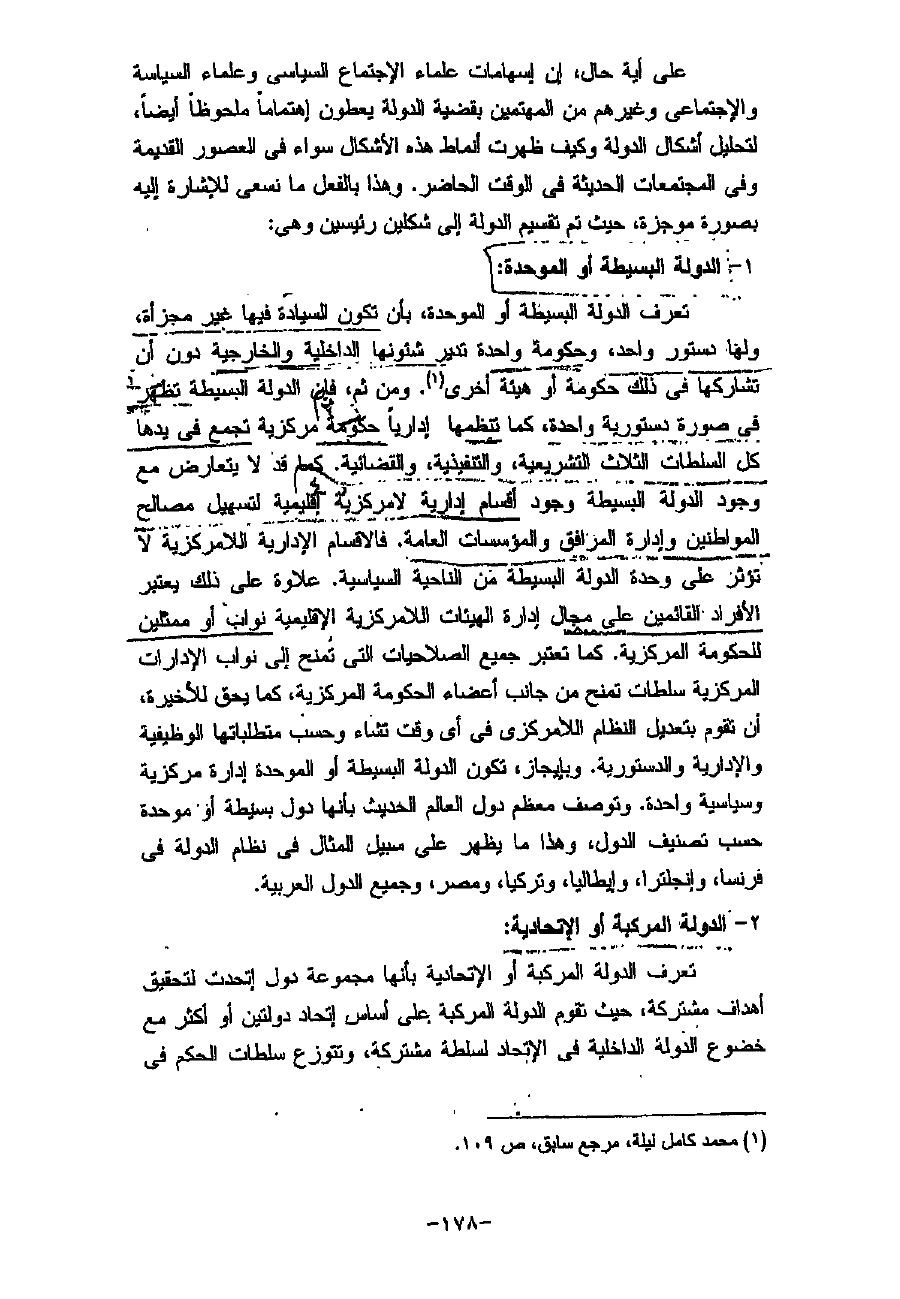 على أية حال، إن إسهامات علماء الإجتماع السياسى وعلماء السياسة
والإجتماعى وغيرهم من المهتمين بقضية الدولة يعطون إهتماماً ملحوظاً أيضاً،
لتحليل أشكال الدولة وكيف ظهرت أنماط هذه الأشكال سواء فى العصور القديمة
وفى المجتمعات الحديثة فى الوقت الحاضر. وهذا بالفعل ما نسعى للإشارة إليه
بصورة موجزة، حيث تم تقسيم الدولة إلى شكلين رئيسين وهي:
١- الدولة البسيطة أو الموحدة:
تعرف الدولة البسيطة أو الموحدة، بأن تكون السيادة فيها غير مجزأة،
ولها دستور واحد، وحكومة واحدة تدير شئونها الداخلية والخارجية دون أن
تشاركها فى ذلك حكومة أو هيئة أخرى(١). ومن ثم، فإن الدولة البسيطة تظهر
فى صورة دستورية واحدة، كما تنظمها إدارياً حكومة مركزية تجمع فى يدها
كل السلطات الثلاث التشريعية، والتنفيذية، والقضائية. كما قد لا يتعارض مع
وجود الدولة البسيطة وجود أقسام إدارية لامركزية إقليمية لتسهيل مصالح
المواطنين وإدارة المرافق والمؤسسات العامة. فالاقسام الإدارية اللامركزية لا
تؤثر على وحدة الدولة البسيطة من الناحية السياسية. علاوة على ذلك يعتبر
الأفراد القائمين على مجال إدارة الهيئات اللامركزية الإقليمية نواب أو ممثلين
للحكومة المركزية. كما تعتبر جميع الصلاحيات التى تمنح إلى نواب الإدارات
المركزية سلطات تمنح من جانب أعضاء الحكومة المركزية، كما يحق للأخيرة،
أن تقوم بتعديل النظام اللامركزى فى أى وقت تشاء وحسب متطلباتها الوظيفية
والإدارية والدستورية. وبإيجاز، تكون الدولة البسيطة أو الموحدة إدارة مركزية
وسياسية واحدة. وتوصف معظم دول العالم الحديث بأنها دول بسيطة أو موحدة
حسب تصنيف الدول، وهذا ما يظهر على سبيل المثال فى نظام الدولة فى
فرنسا، وإنجلترا، وإيطاليا، وتركيا، ومصر، وجميع الدول العربية.
٢- الدولة المركبة أو الإتحادية:
تعرف الدولة المركبة أو الإتحادية بأنها مجموعة دول إتحدت لتحقيق
أهداف مشتركة، حيث تقوم الدولة المركبة على أساس إتحاد دولتين أو أكثر مع
خضوع الدولة الداخلية فى الإتحاد لسلطة مشتركة، وتتوزع سلطات الحكم فى
(١) محمد كامل ليلة، مرجع سابق، ص ١٠٩.
-١٧٨-